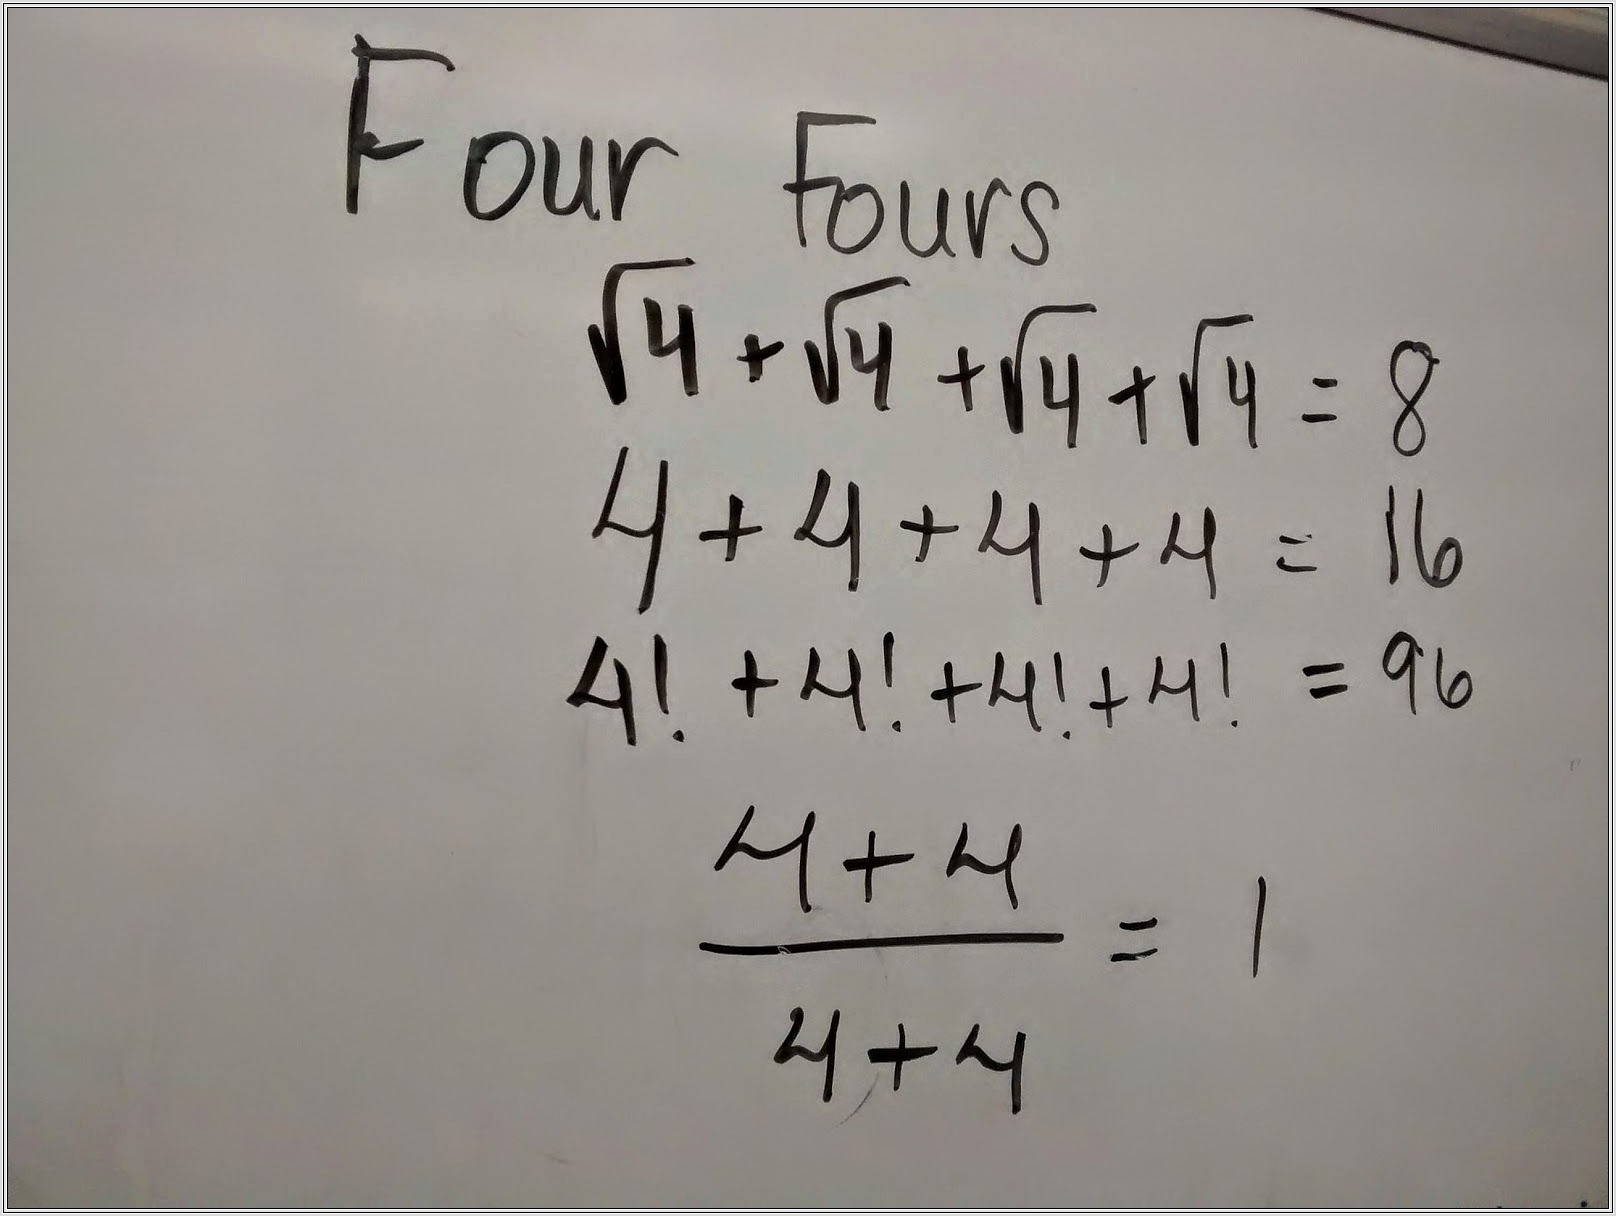 Four Fours
√4 + √4 + √4 + √4 = 8
4 + 4 + 4 + 4 = 16
4! + 4! + 4! + 4! = 96
4 + 4
/
4 + 4 = 1